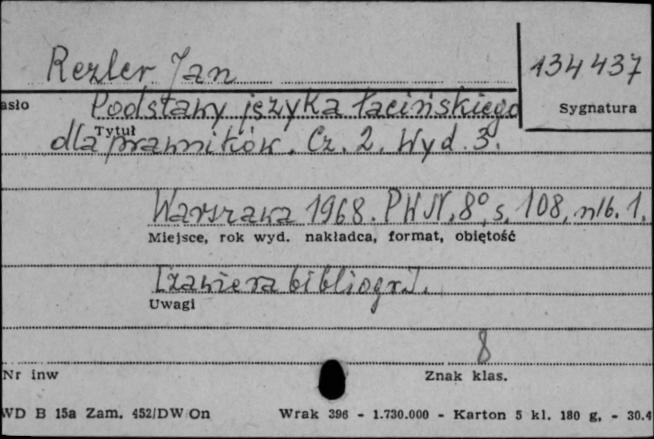 Rezler Jan 134437
asło Podstawy języka łacińskiego Sygnatura
Tytuł
dla prawników. Cz. 2. Wyd. 3.
Warszawa 1968. PWN, 8°, s. 108, nlb. 1.
Miejsce, rok wyd. nakładca, format, objętość
[zawiera bibliogr.].
Uwagi
8
Nr inw Znak klas.
WD B 15a Zam. 452/DW/On Wrak 396 - 1.730.000 - Karton 5 kl. 180 g, - 30.4